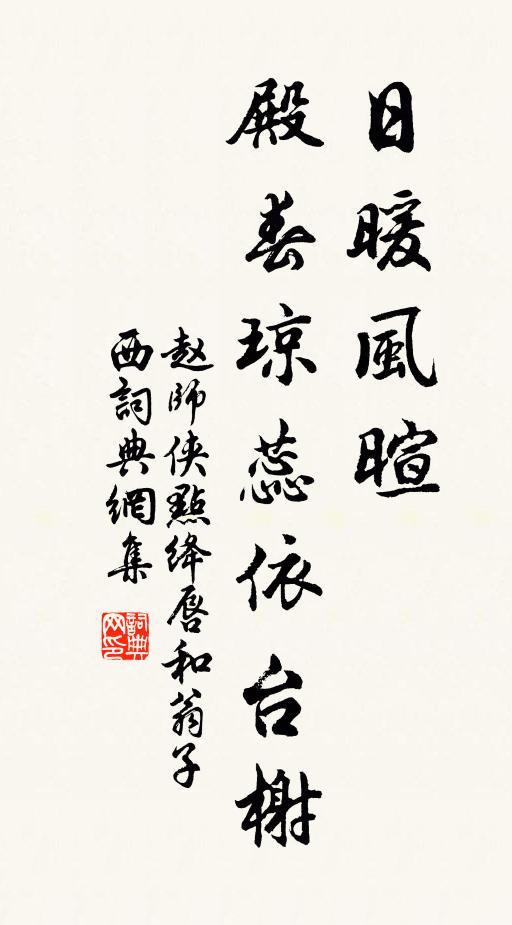 日暖風暄
殿春琼蕊依台榭
赵師侠點绛唇和翁子
西詞典網集
詞典网印